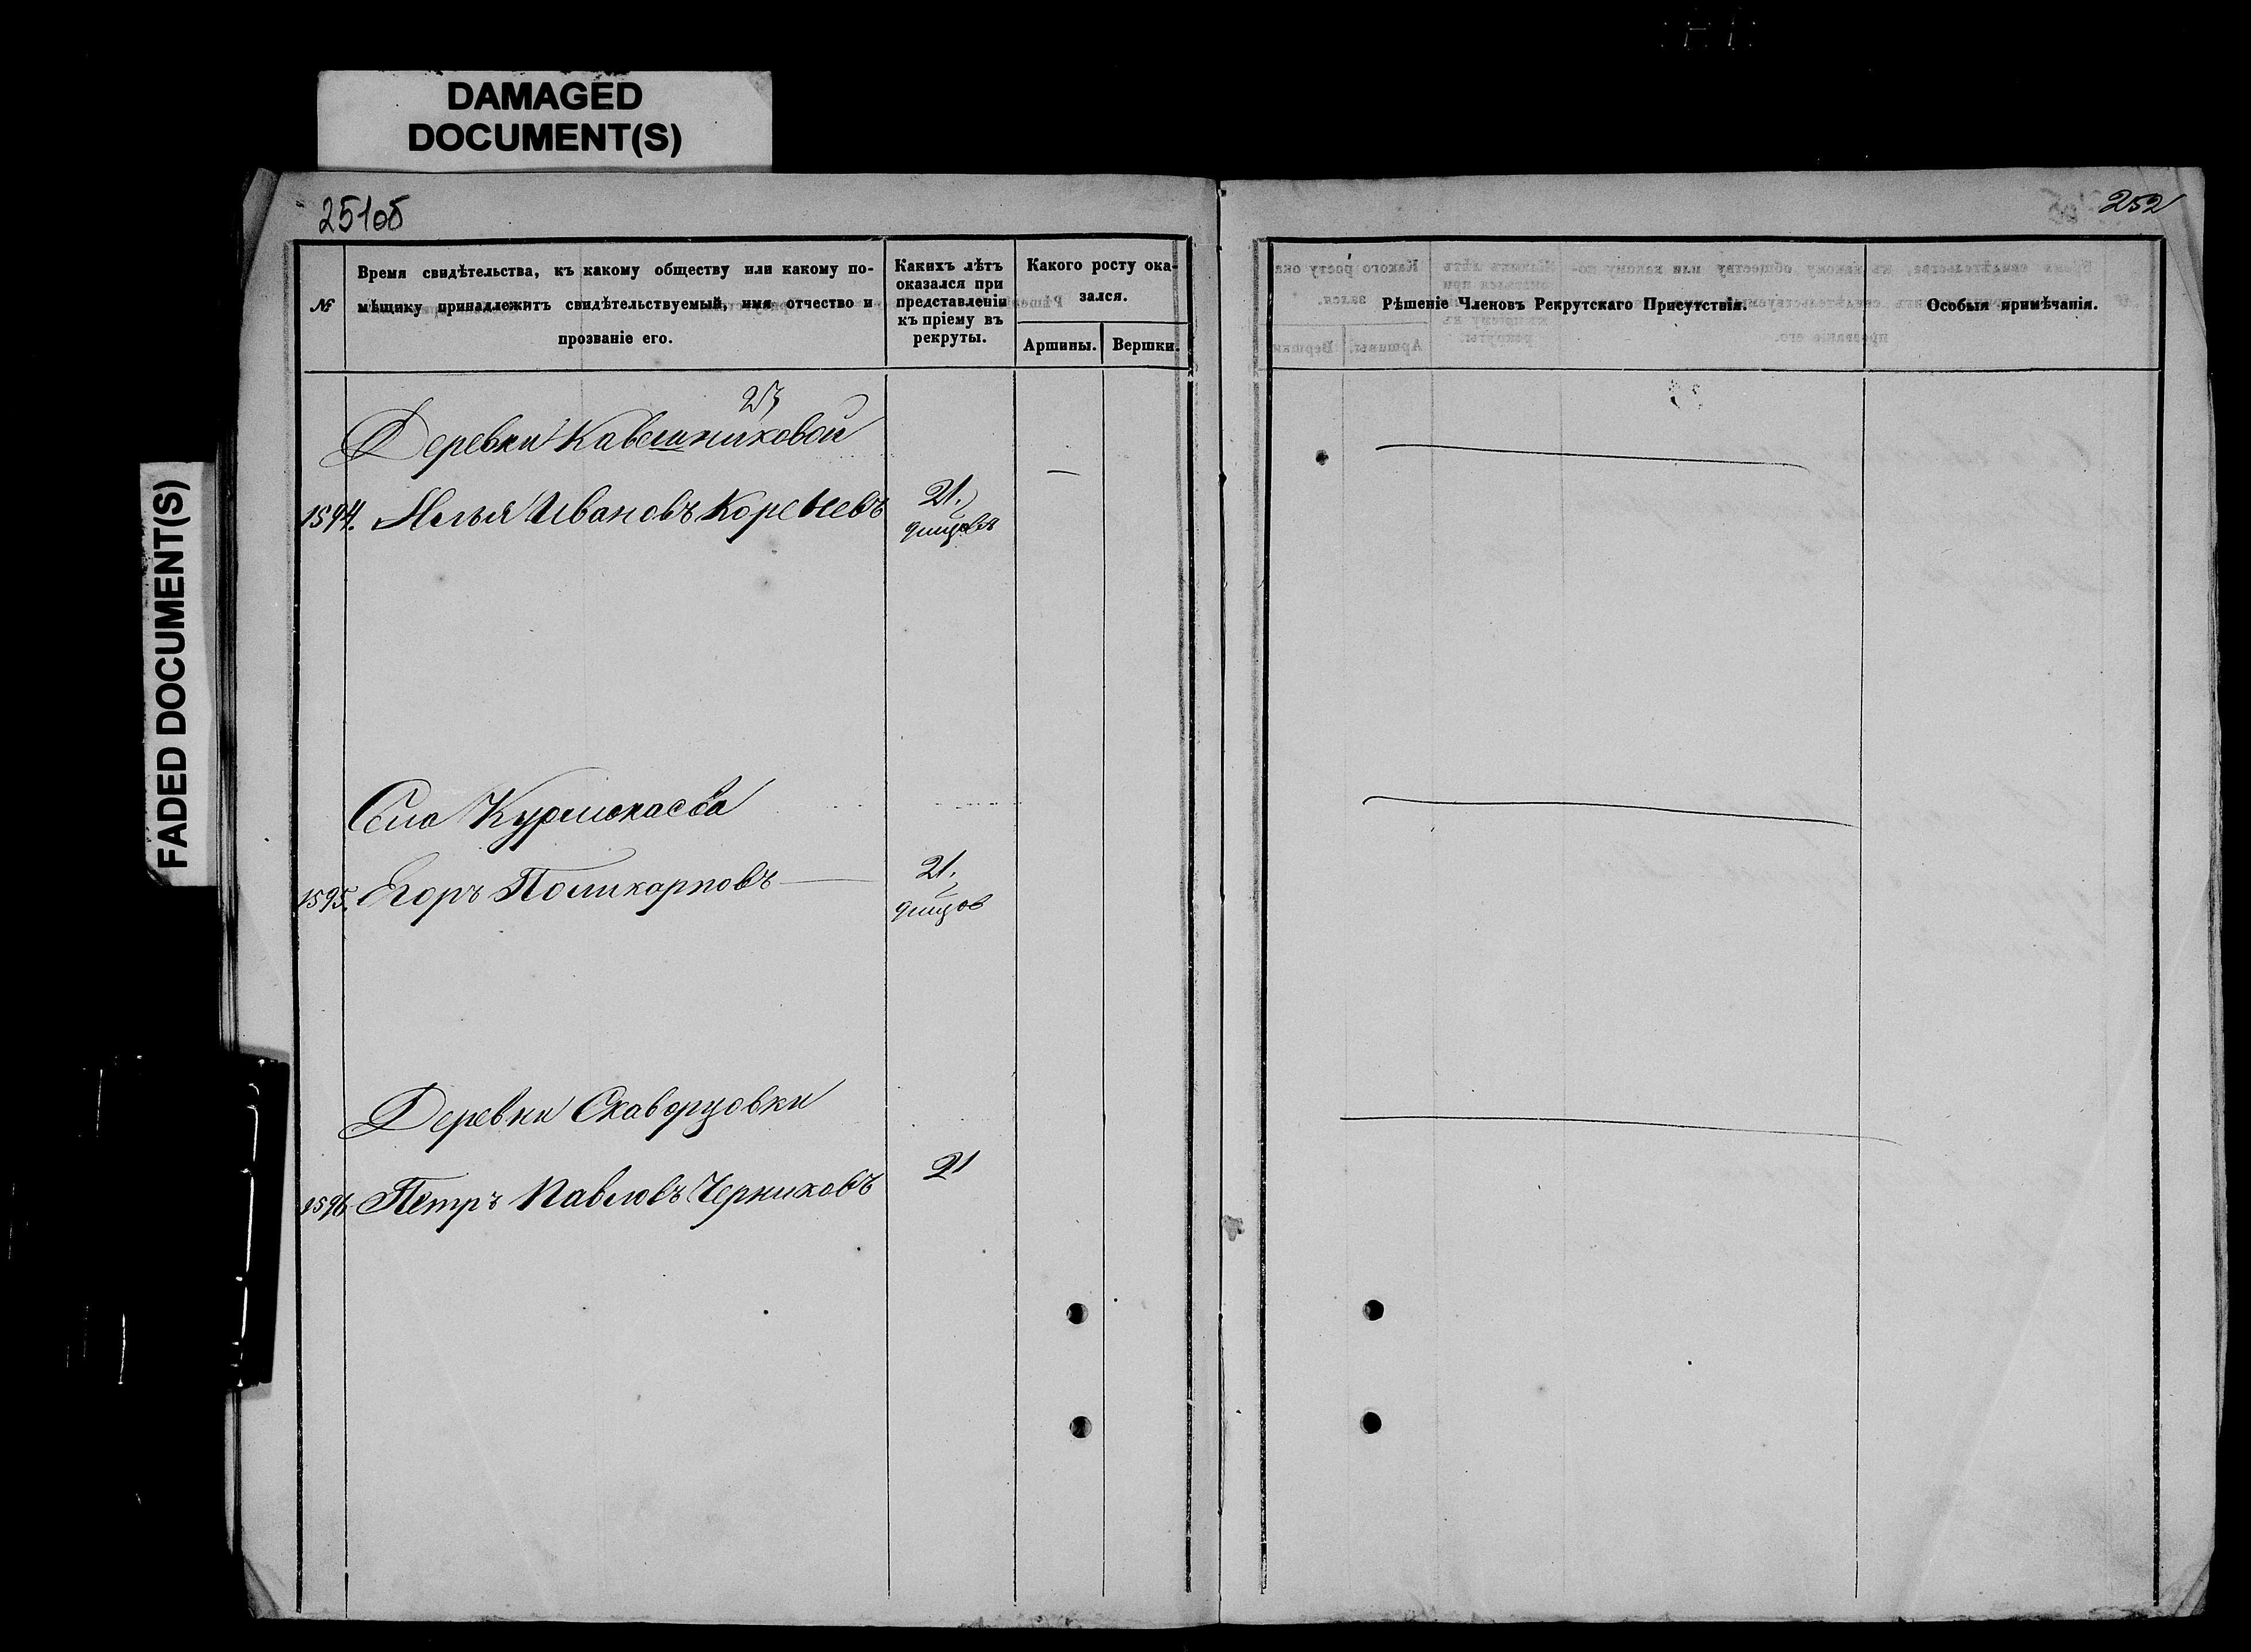 DAMAGED
DOCUMENT(S)
FADED DOCUMENT(S)
251об
252
№
Время свидѣтельства, къ какому обществу или какому по-
мѣщику принадлежитъ свидѣтельствуемый, имя отчество и
прозваніе его.
Какихъ лѣтъ
оказался при
представленіи
къ пріему въ
рекруты.
Какого росту ока-
зался.
Аршины.
Вершки.
Рѣшеніе Членовъ Рекрутскаго Присутствія.
Особыя примѣчанія.
Деревни Кавешниковой
1594. Илья Ивановъ
21.
Села
1595. Егоръ Поликарповъ
21.
Деревни Скаворцовки
1596 Петръ Павловъ Черниковъ
21